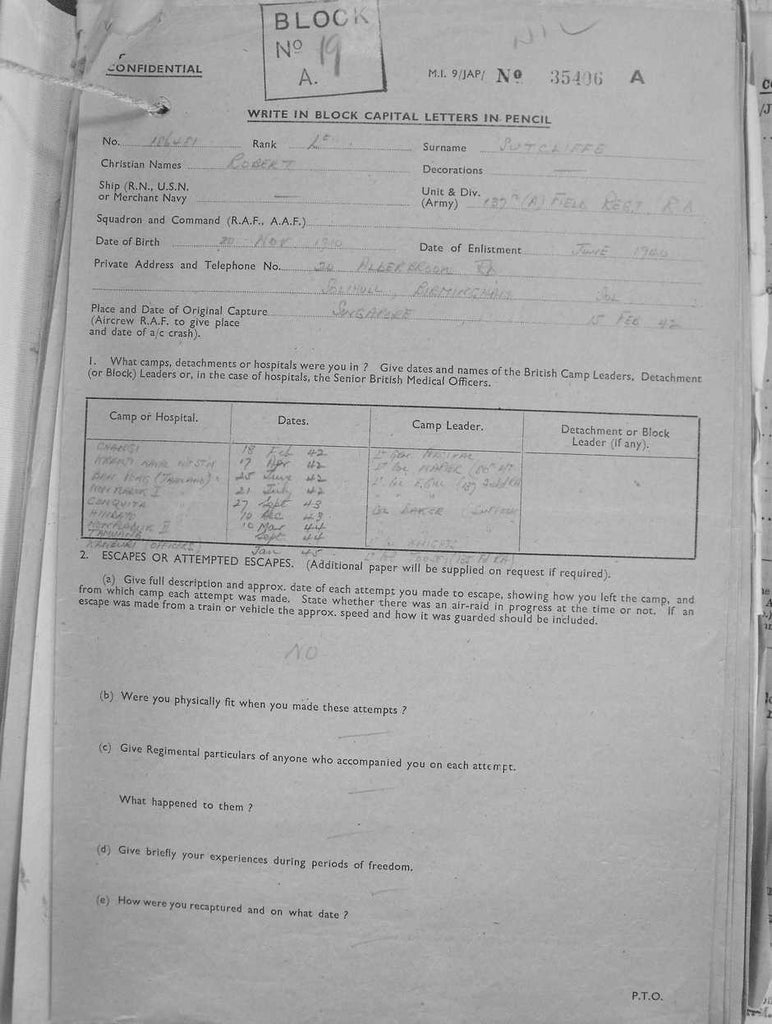 BLOCK
Nº 19
A.
NIL
CONFIDENTIAL
M.I. 9/JAP/ Nº 35406 A
WRITE IN BLOCK CAPITAL LETTERS IN PENCIL
No. 186481 Rank Lt Surname SUTCLIFFE
Christian Names ROBERT Decorations —
Ship (R.N., U.S.N.
or Merchant Navy —
Unit & Div.
(Army) 137th (A) FIELD REGT RA
Squadron and Command (R.A.F., A.A.F.)
Date of Birth 20 NOV 1910 Date of Enlistment JUNE 1940
Private Address and Telephone No. Rd
SOLIHULL, BIRMINGHAM SOL
Place and Date of Original Capture SINGAPORE 15 FEB 42
(Aircrew R.A.F. to give place
and date of a/c crash).
1. What camps, detachments or hospitals were you in ? Give dates and names of the British Camp Leaders, Detachment
(or Block) Leaders or, in the case of hospitals, the Senior British Medical Officers.
Camp or Hospital. Dates. Camp Leader. Detachment or Block
Leader (if any).
CHANGI 18 Feb 42 Lt Gen PERCIVAL
17 Apr 42 Lt Col
BAN PONG (THAILAND) 25 June 42 Lt Col
NON PLADUK I 21 July 42
27 Sept 43
HINDATO 10 Dec 43 Col BAKER
NON PLADUK II 10 Mar 44
TAMUANG Sept 44 Lt Col
KANBURI (OFFICERS) Jan 45 Lt Col
2. ESCAPES OR ATTEMPTED ESCAPES. (Additional paper will be supplied on request if required).
(a) Give full description and approx. date of each attempt you made to escape, showing how you left the camp, and
from which camp each attempt was made. State whether there was an air-raid in progress at the time or not. If an
escape was made from a train or vehicle the approx. speed and how it was guarded should be included.
NO
(b) Were you physically fit when you made these attempts ?
—
(c) Give Regimental particulars of anyone who accompanied you on each attempt.
—
What happened to them ?
—
(d) Give briefly your experiences during periods of freedom.
—
(e) How were you recaptured and on what date ?
—
P.T.O.